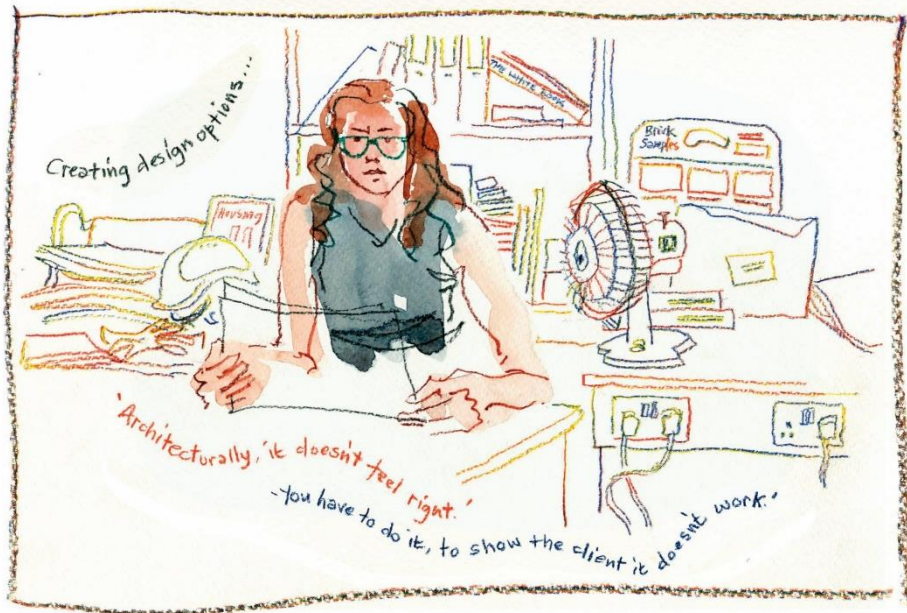 Creating design options...
THE WHITE BOOK
Brick
Samples
Housing
'Architecturally, it doesn't feel right.'
-You have to do it, to show the client it doesn't work.'